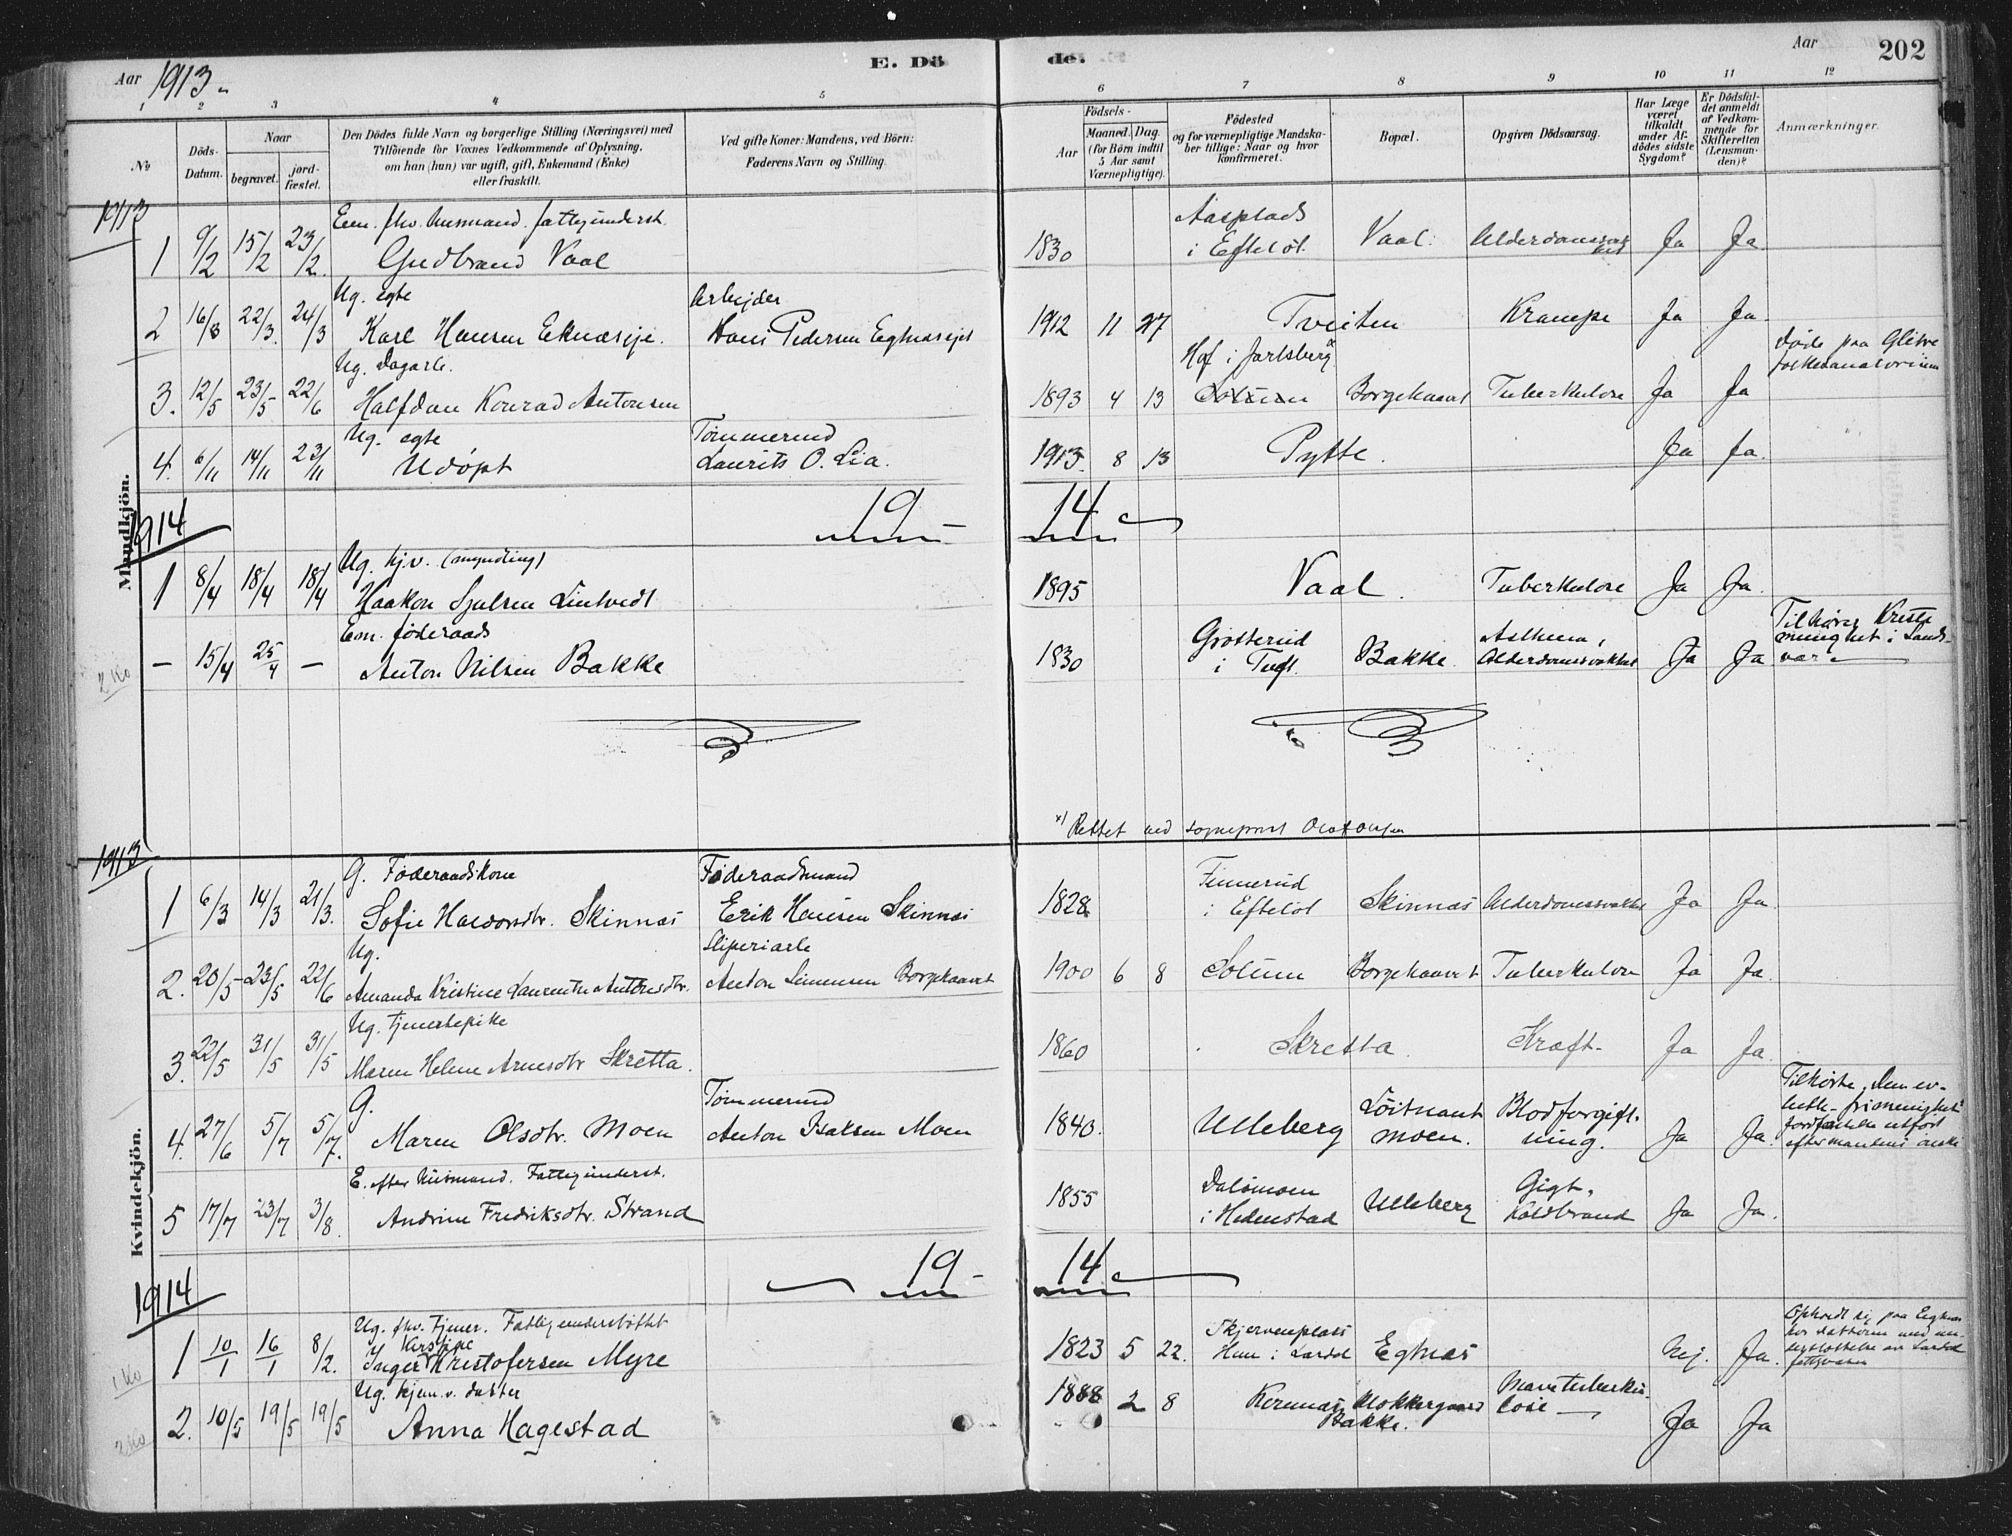 Aar 1913.
E. Dö
de.
Aar
202
1 2 3 4 5 6 7 8 9 10 11 12
No
Döds-Datum.
Naar
begravet.
jord-fæstet.
Den Dödes fulde Navn og borgerlige Stilling (Næringsvei) med
Tilföiende for Voxnes Vedkommende af Oplysning,
om han (hun) var ugift, gift, Enkemand (Enke)
eller fraskilt.
Ved gifte Koner: Mandens, ved Börn:
Faderens Navn og Stilling.
Födsels-
Aar
Maaned. Dag.
(for Börn indtil
5 Aar samt
Værnepligtige).
Födested
og for værnepligtige Mandska-
ber tillige: Naar og hvor
konfirmeret.
Bopæl.
Opgiven Dödsaarsag.
Har Læge
været
tilkaldt
under Af-
dödes sidste
Sygdom?
Er Dödsfal-
det anmeldt
af Vedkom-
mende for
Skifteretten
(Lensman-
den)?
Anmærkninger.
Mandkjön.
1913
Em. fhv. Husmand. fattigunderst.
1 9/2 15/2 23/2. Gudbrand Vaal 1830 Aasplads i Efteløt Vaal. Alderdomssvakhet Ja Ja
Ug. egte Arbejder
2 16/3 22/3. 24/3 Karl Hansen Eknæseje. Hans Pedersen Egnæsejet 1912 11 27 Tveiten Krampe Ja Ja
Ug. Dagarb. Hof i Jarlsberg Døde paa Glitre folkesanatorium
3. 12/5 23/5 22/6 Halfdan Konrad Antonsen 1893 4 13 Solum Borgekaaset Tuberkulose Ja Ja
Ug. egte Tømmermd
4. 6/11 14/11 23/11 Udøpt Laurits O. Lia. 1913. 8 13 Pytte. Ja Ja.
1914 19 14
Ug. hjv. (myndling)
1 8/4 18/4 18/4 Haakon Lintvedt 1895 Vaal. Tuberkulose Ja Ja.
Em. føderaads Tilhører
— 15/4 25/4 — Anton Nilsen Bakke 1830 Grosterud i Tuft. Bakke Asthma, Alderdomssvakhet Ja Ja
2 ko
x) Rettet ved sogneprest
Kvindekjön.
1913
G. Føderaadskone Føderaadsmand
1 6/3 14/3 21/3. Sofie Halvorsdtr. Skinnæs Erik Hansen Skinnæs 1828 Finnerud i Efteløt Skinnæs Alderdomssvakhet Ja Ja.
Ug. Sliperiarb
2. 20/5 23/5 22/6 Amanda Kristine Laurentse Antonsdtr. Anton Simensen Borgekaaset 1900 6 8 Solum Borgekaaset Tuberkulose Ja Ja.
Ug. tjenestepike
3. 22/5 31/5 31/5 Maren Helene Arnesdtr Skretta. 1860 Skretta. Kræft. Ja Ja.
G. Tømmermd
4. 27/6 5/7 5/7. Maren Olsdtr. Moen Anton Isaksen Moen 1840. Ulleberg Løitnant moen. Blodforgiftning. Ja Ja. Tilhørte den ev- luth- frimenighet. Jordfæstelse utført efter mandens ønske
E. efter Husmand. Fattigunderst.
5 17/7 23/7 3/8. Andrine Fredriksdtr. Strand 1855 Dalsmoen i Hedenstad Ulleberg Gigt, Koldbrand Ja Ja.
1914 19 14
Ug. fhv. tjener. Fattigunderstøttet
1 10/1 16/1 8/2. Inger Kirstine Kristofersen Myre 1823 5 22. Skjervenplass Hem i Lardal Egnæs Nej. Ja. Opholdt sig paa Eegnæs hos datteren med understøttelse av Lardal fattigvæsen
1 ko
Ug. hjem.v. datter
2. 10/5 19/5 19/5 Anna Hagestad 1888 2 8 Klokkergaard Bakke. Mavetuberkulose Ja Ja
2 ko